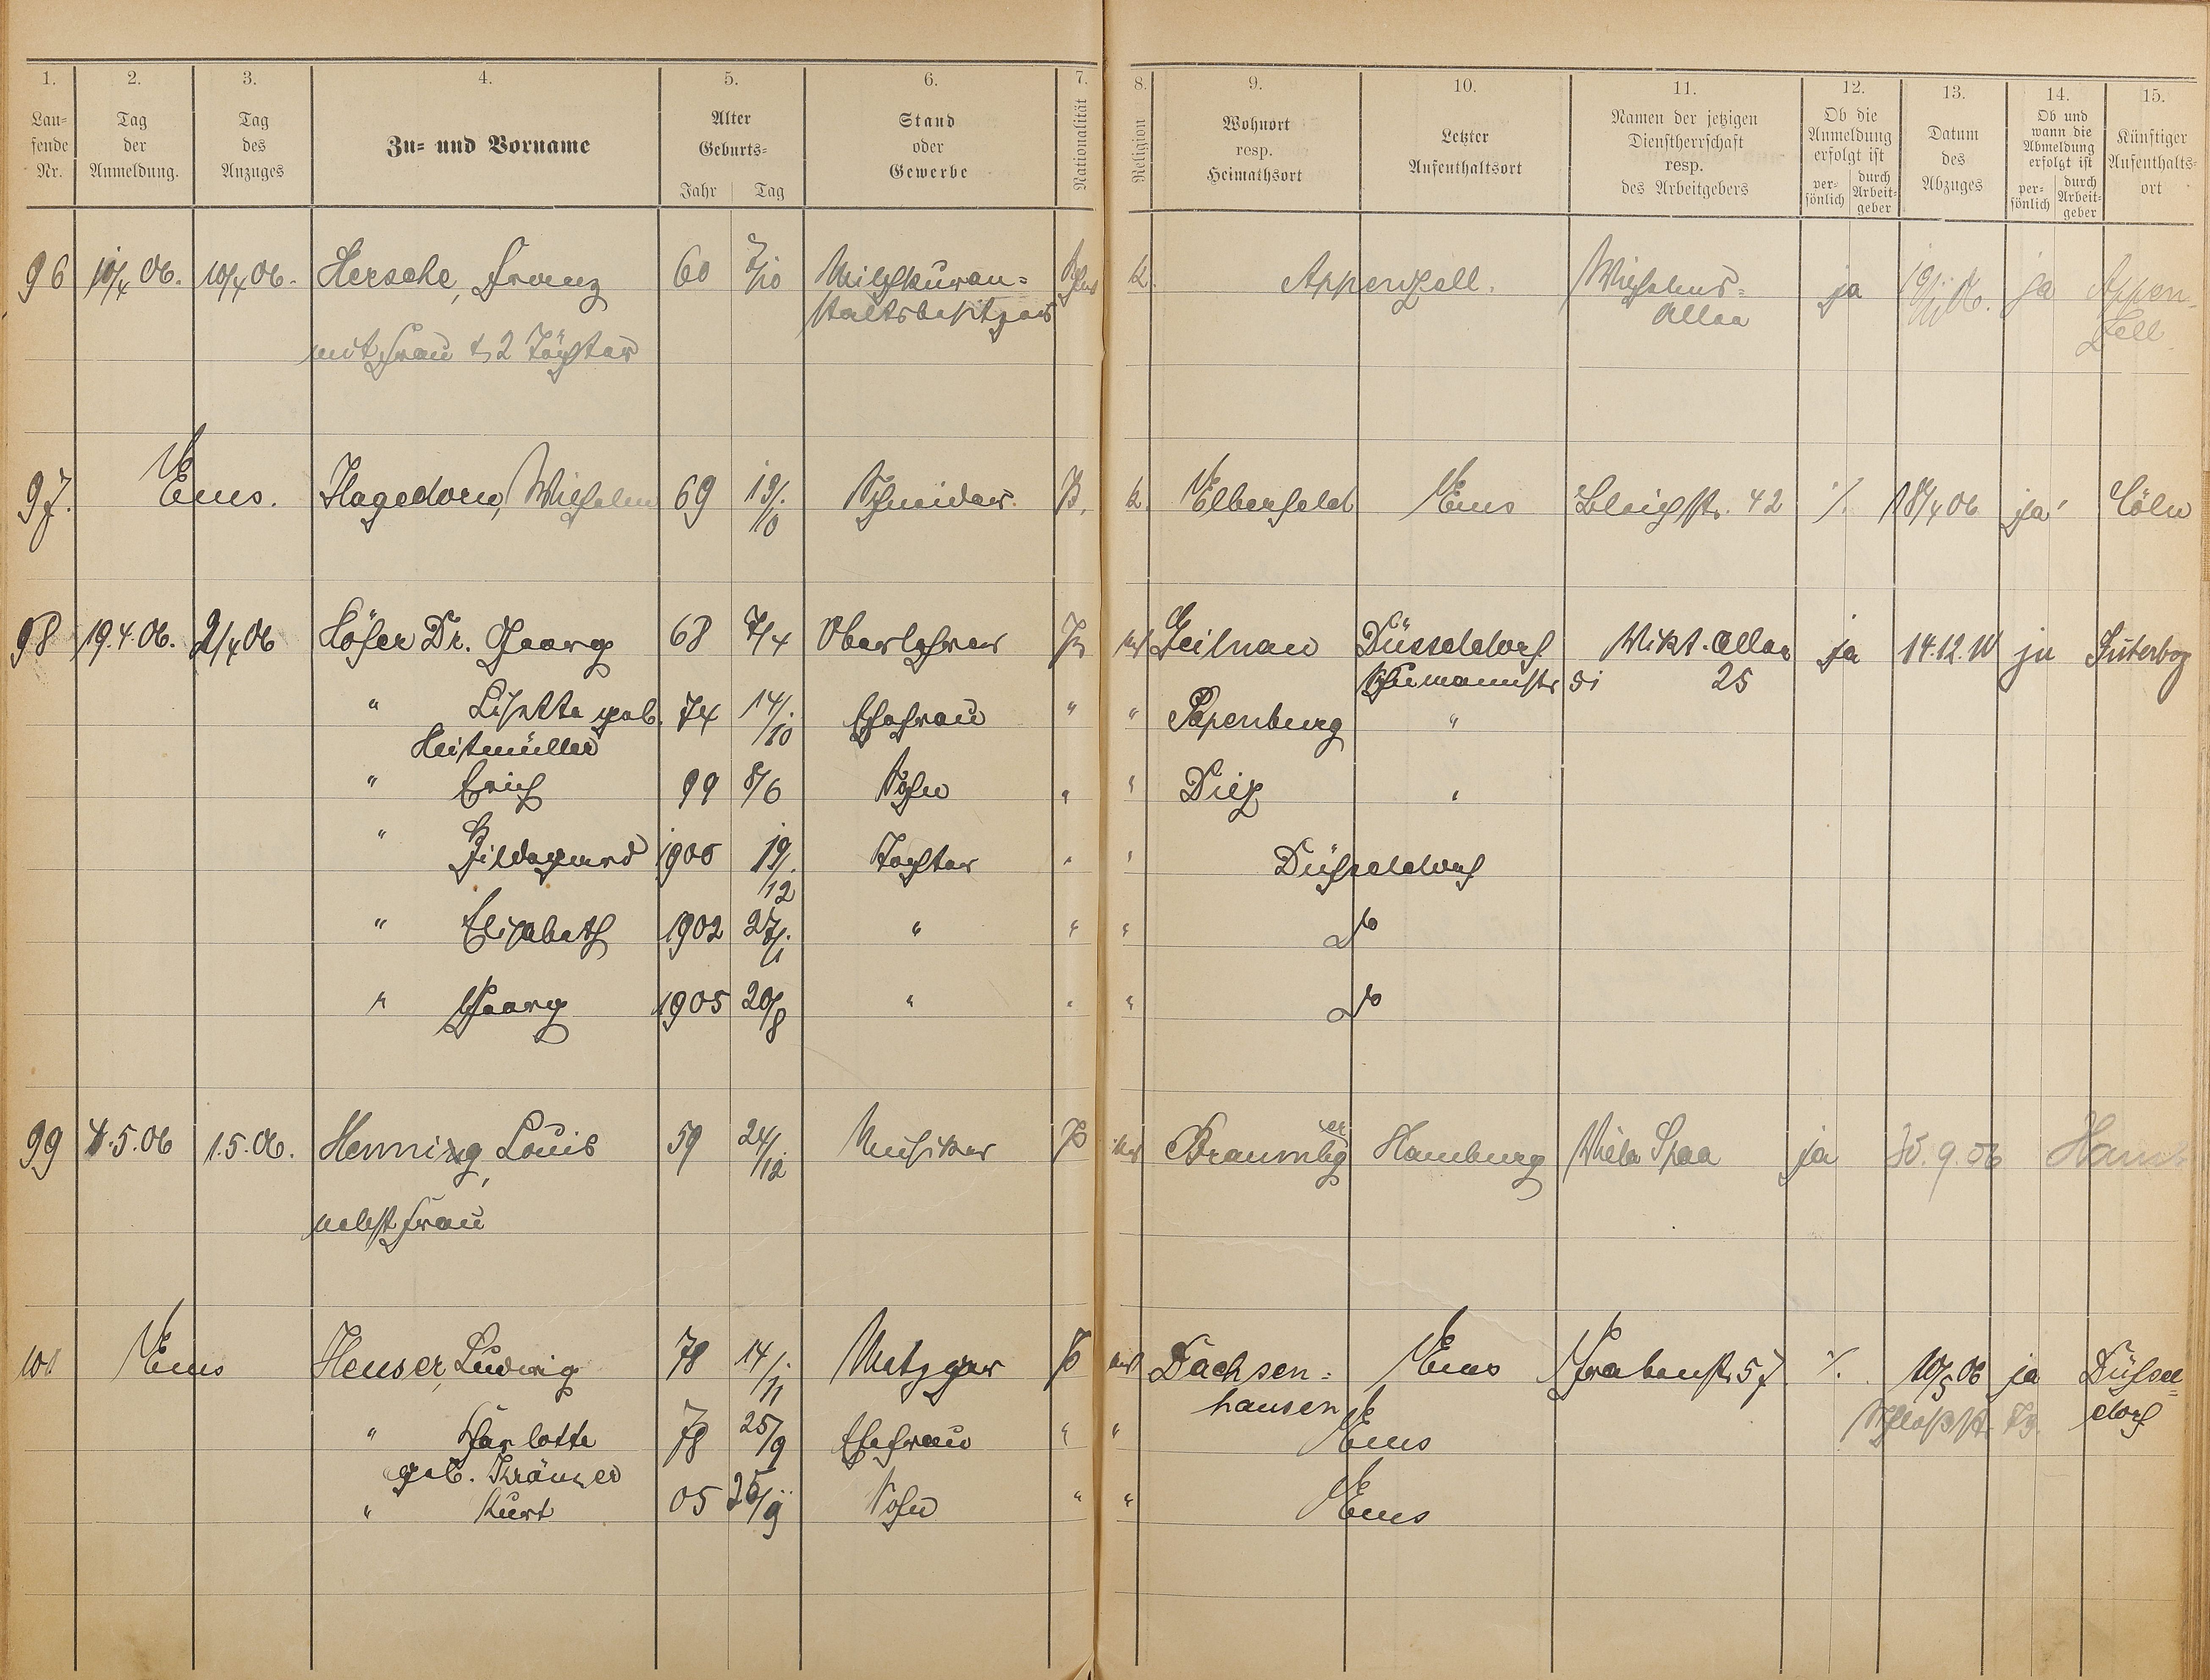 1. 2. 3. 4. 5. 6. 7. 8. 9. 10. 11. 12. 13. 14. 15.
Lau-
fende
Nr.
Tag
der
Anmeldung.
Tag
des
Anzuges
Zu- und Vorname
Alter
Geburts-
Jahr Tag
Stand
oder
Gewerbe
Nationalität
Religion
Wohnort
resp.
Heimathsort
Letzter
Aufenthaltsort
Namen der jetzigen
Dienstherrschaft
resp.
des Arbeitgebers
Ob die
Anmeldung
erfolgt ist
per-
sönlich
durch
Arbeit-
geber
Datum
des
Abzuges
Ob und
wann die
Abmeldung
erfolgt ist
per-
sönlich
durch
Arbeit-
geber
Künftiger
Aufenthalts-
ort
96 10/4 06. 10/4 06. Hersche, Franz 60 7/10 Milchkuran= k. Appenzell. Wilhelms= ja ja Appen-
staltsbesitzer Allee zell
mit Frau & 2 Töchter
97. Ems. Hagedorn, Wilhelm 69 19/10 Schneider. P. k. Elberfeld Ems Bleichstr. 42 ./. 18/4 06 ja Cöln
98 19.4.06. 2/4 06 Höfer Dr. Georg 68 7/4 Oberlehrer P. Geilnau Düsseldorf Vikt. Allee ja 14.12. ja Jüterbog
Schumannstr 51 25
" Lisette geb. 74 14/10 Ehefrau " " Papenburg "
Heitmüller
" Erich 99 8/6 Sohn " " Diez "
" Hildegard 1900 19/12 Tochter " " Düsseldorf
" Elisabeth 1902 27/1 " " " do
" Georg 1905 20/8 " " " do
99 4.5.06 1.5.06. Henning, Louis 59 24/12 Musiker P Hamburg Villa Spaa ja 30.9.06 Hamb
nebst Frau
100 Ems Heuser, Ludwig 78 14/11 Metzger P Dachsen= Ems Grabenstr. 57. ./. 10/5 06 ja Düssel=
hausen dorf
" Charlotte 78 25/9 Ehefrau " " Ems
geb. Krämer
" Kurt 05 25/9 Sohn " " Ems